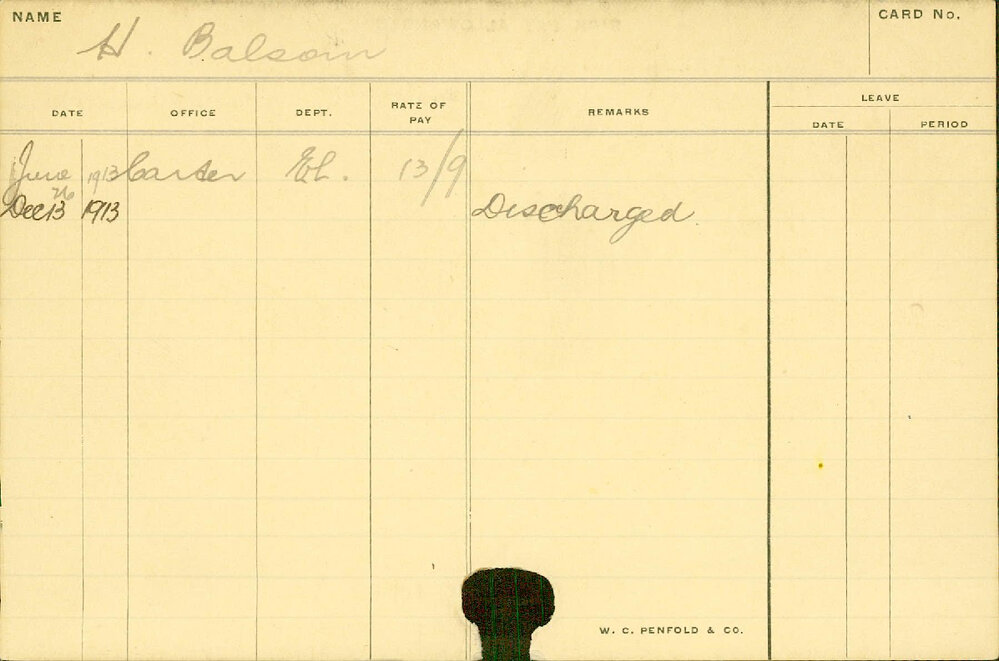 NAME H. Balsom CARD No.
DATE OFFICE DEPT. RATE OF PAY REMARKS LEAVE
DATE PERIOD
June 26 1913 Carter EL. 13/9
Dec 13 1913 Discharged
W. C. PENFOLD & CO.